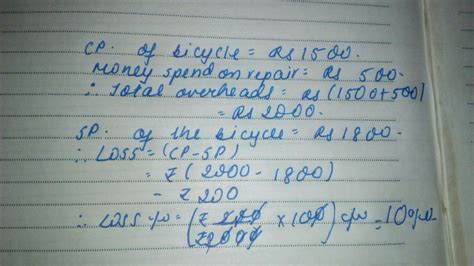 CP. of bicycle = Rs 1500.
Money spend on repair = Rs 500.
∴ Total overheads = Rs (1500+500)
= Rs 2000.
SP. of the bicycle = Rs 1800.
∴ LOSS = (CP-SP)
= ₹ (2000 - 1800)
= ₹ 200
∴ LOSS % = (₹ 200 / ₹ 2000 × 100) % = 10%.